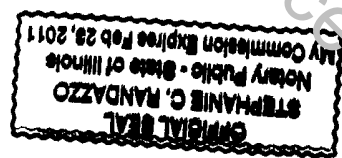 OFFICIAL SEAL
STEPHANIE C. RANDAZZO
Notary Public - State of Illinois
My Commission Expires Feb 23, 2011